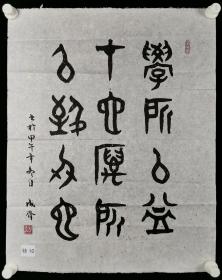 學所以益
才也礪所
以致刃也
於甲午年